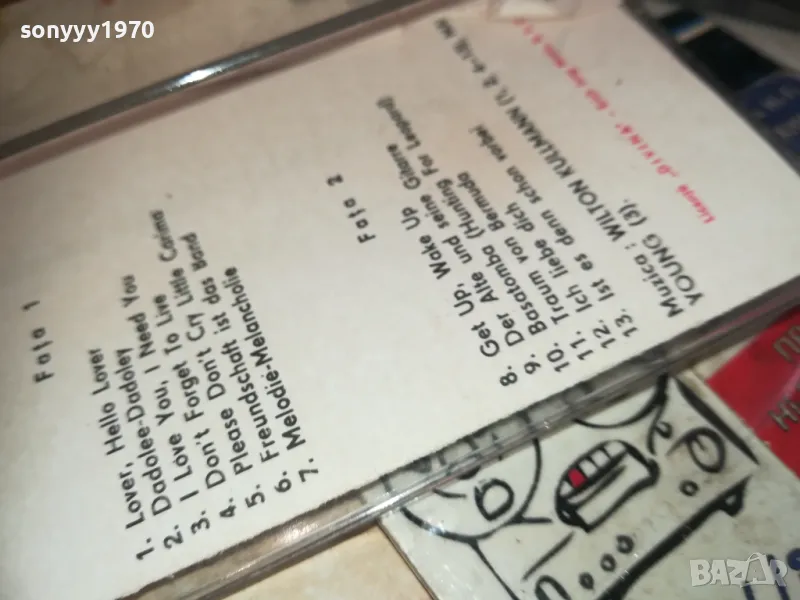 sonyyy1970
Fața 1
1. Lover, Hello Lover
2. Dadolee-Dadoley
3. I Love You, I Need You
4. Don't Forget To Live
5. Please Don't Cry Little Carima
6. Freundschaft ist das Band
7. Melodie-Melancholie
Fața 2
8. Get Up, Wake Up
9. Der Alte und seine Gitarre
10. Basatomba (Hunting For Leopard)
11. Traum von Bermuda
12. Ich liebe dich
13. Ist es denn schon vorbei
Muzica: WILTON KULLMANN (1, 2,
YOUNG (3).
Licența „DIVINA" -
BAZAR